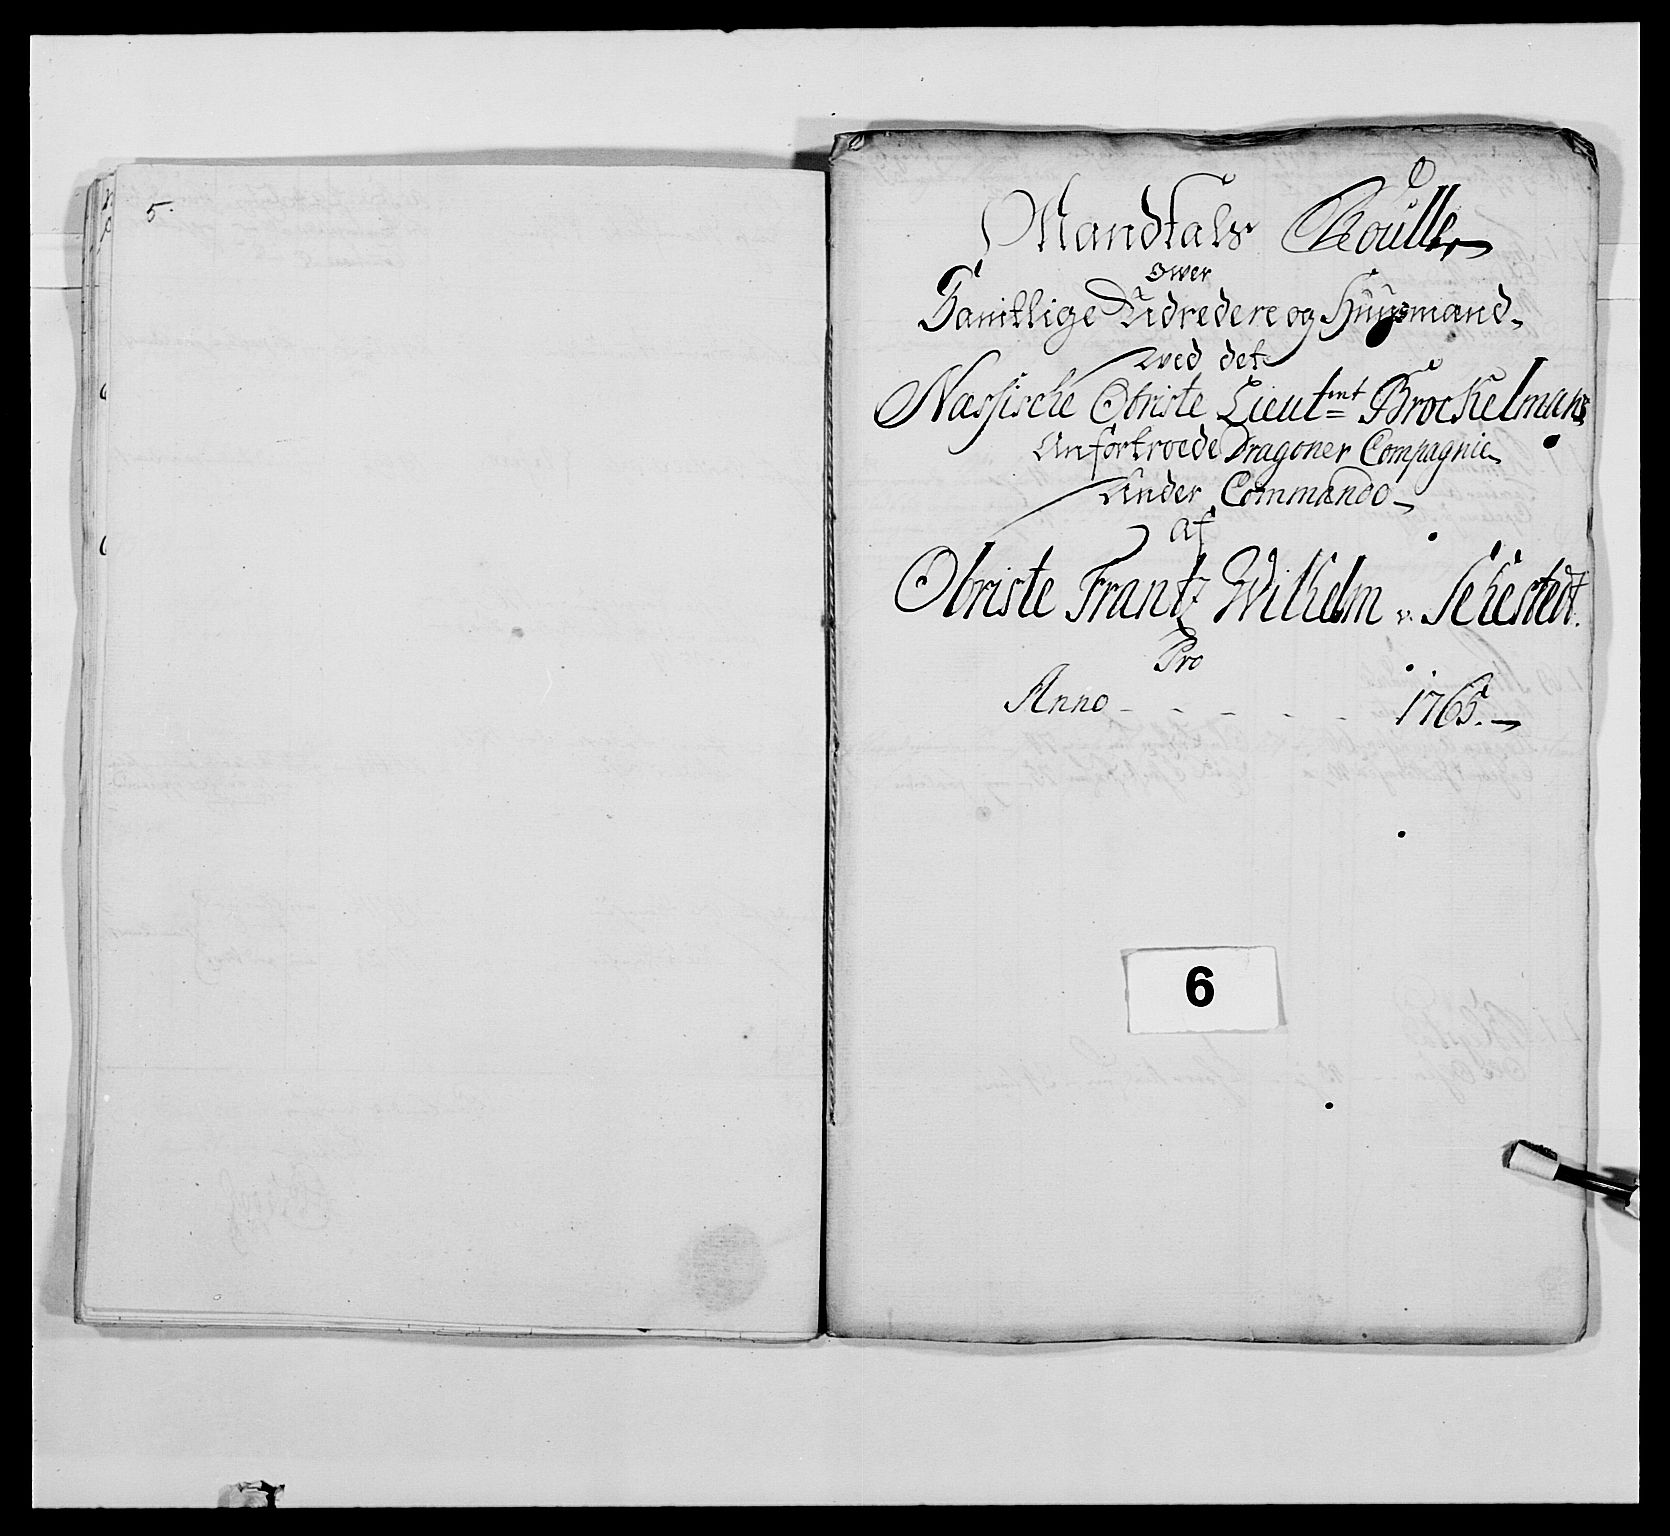 5.
Mandtals Roulle
over
Samtlige Udredere og Huusmænd
ved det
Næssiske Obriste Lieut:nt Brockelmans
Anfortroede Dragoner Compagnie
Under Commando
af
Obriste Frantz Wilhelm v. Sehestedt.
Pro
Anno - - - - - 1765.
6